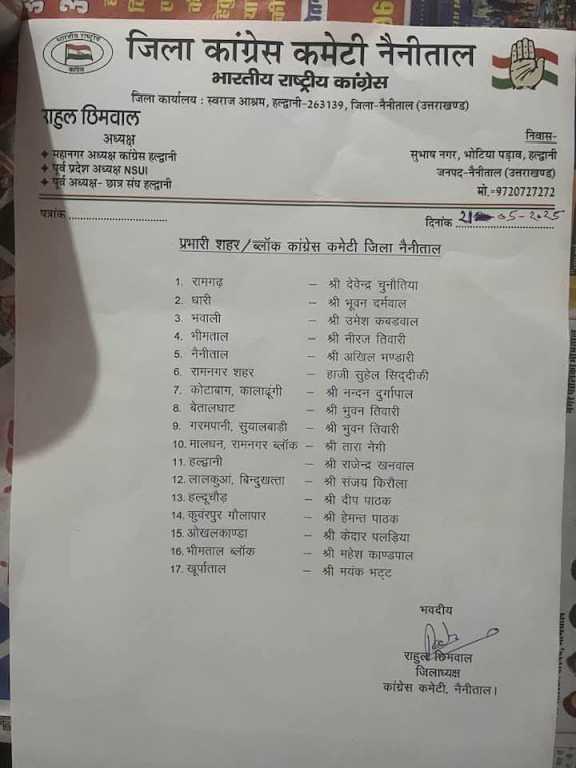 जिला कांग्रेस कमेटी नैनीताल
भारतीय राष्ट्रीय कांग्रेस
जिला कार्यालय : स्वराज आश्रम, हल्द्वानी-263139, जिला-नैनीताल (उत्तराखण्ड)
राहुल छिमवाल
अध्यक्ष
महानगर अध्यक्ष कांग्रेस हल्द्वानी
पूर्व प्रदेश अध्यक्ष NSUI
पूर्व अध्यक्ष- छात्र संघ हल्द्वानी
निवास-
सुभाष नगर, भोटिया पड़ाव, हल्द्वानी
जनपद-नैनीताल (उत्तराखण्ड)
मो.-9720727272
पत्रांक
दिनांक 21-05-2025
प्रभारी शहर/ब्लॉक कांग्रेस कमेटी जिला नैनीताल
1. रामगढ़ – श्री देवेन्द्र चुनौतिया
2. धारी – श्री भूवन दर्मवाल
3. भवाली – श्री उमेश कबडवाल
4. भीमताल – श्री नीरज तिवारी
5. नैनीताल – श्री अखिल भण्डारी
6. रामनगर शहर – हाजी सुहेल सिद्दीकी
7. कोटाबाग, कालाढूंगी – श्री नन्दन दुर्गापाल
8. बेतालघाट – श्री भुवन तिवारी
9. गरमपानी, सुयालबाड़ी – श्री भुवन तिवारी
10. मालधन, रामनगर ब्लॉक – श्री तारा नेगी
11. हल्द्वानी – श्री राजेन्द्र खनवाल
12. लालकुआं, बिन्दुखत्ता – श्री संजय किरौला
13. हल्दूचौड़ – श्री दीप पाठक
14. कुवंरपुर गौलापार – श्री हेमन्त पाठक
15. ओखलकाण्डा – श्री केदार पलड़िया
16. भीमताल ब्लॉक – श्री महेश काण्डपाल
17. खूर्पाताल – श्री मयंक भट्ट
भवदीय
राहुल छिमवाल
जिलाध्यक्ष
कांग्रेस कमेटी, नैनीताल।